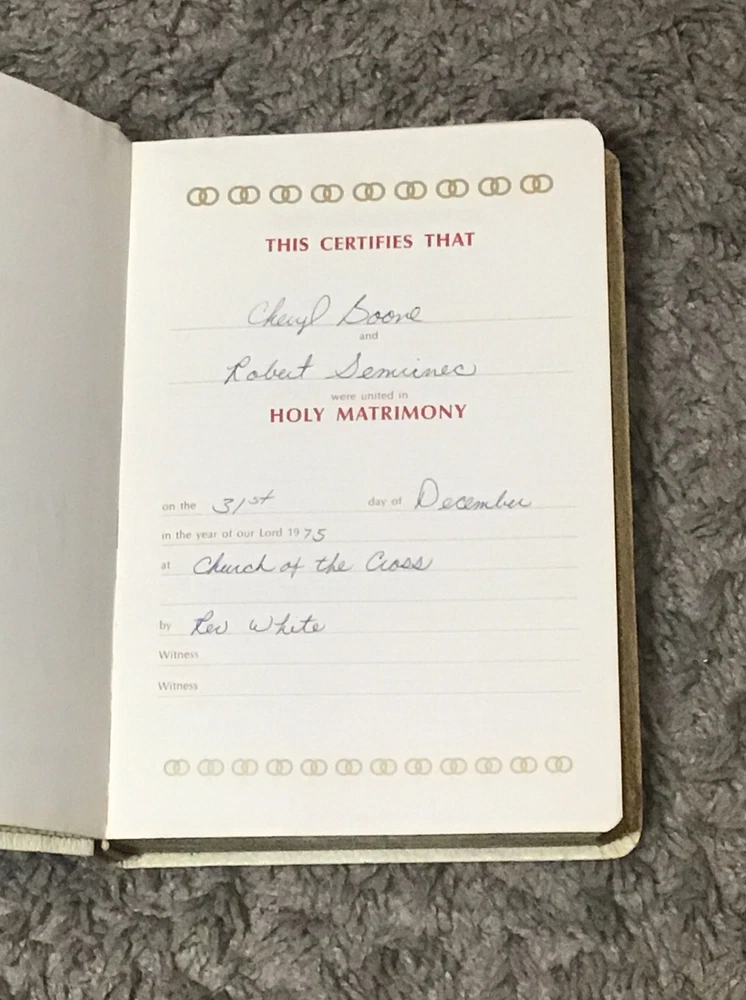 THIS CERTIFIES THAT
Cheryl Boone
and
Robert
were united in
HOLY MATRIMONY
on the 31st day of December
in the year of our Lord 1975
at Church of the Cross
by Rev White
Witness
Witness